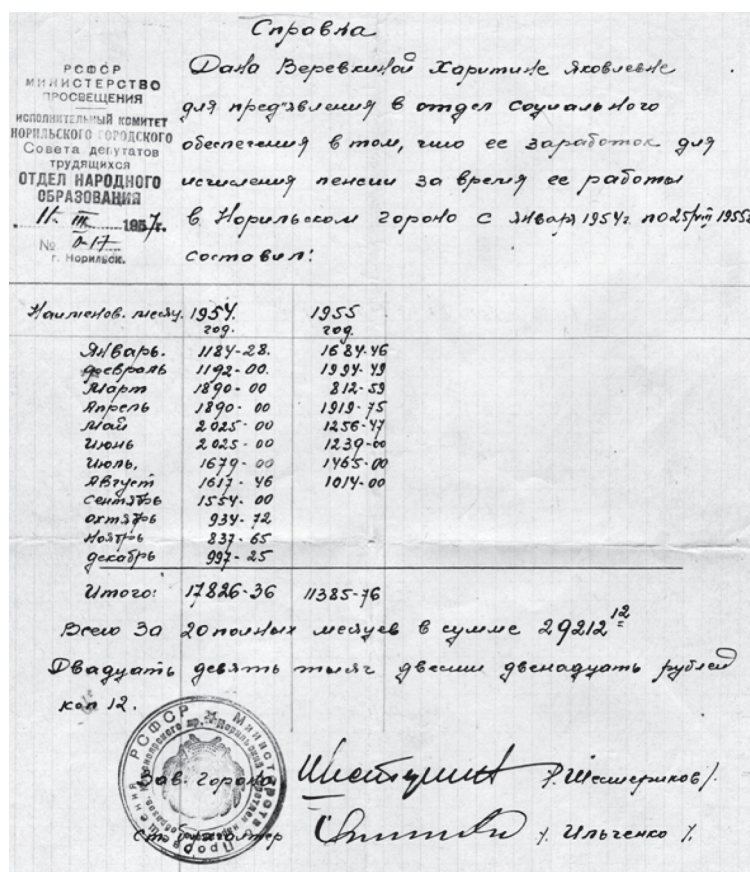 Справка
РСФСР
МИНИСТЕРСТВО
ПРОСВЕЩЕНИЯ
ИСПОЛНИТЕЛЬНЫЙ КОМИТЕТ
НОРИЛЬСКОГО ГОРОДСКОГО
Совета депутатов
трудящихся
ОТДЕЛ НАРОДНОГО
ОБРАЗОВАНИЯ
11. III 1957г.
№ 0-17
г. Норильск.
Дана Веревкиной Харитине Яковлевне
для пред'явления в отдел социального
обеспечения в том, что ее заработок для
исчисления пенсии за время ее работы
в Норильском гороно с января 1954г. по 25/VIII 1955г
составил:
Наименов. месяц. 1954. 1955
год. год.
Январь. 1184-28. 1684-46
февраль 1192-00. 1994-49
Март 1890-00 812-59
Апрель 1890-00 1919-75
Май 2025-00 1256-47
Июнь 2025-00 1239-00
Июль. 1679-00 1465-00
Август 1617-46 1014-00
Сентябрь 1554-00
октябрь 934-72
Ноябрь 837-65
декабрь 997-25
Итого: 17826-36 11385-76
Всего за 20 полных месяцев в сумме 29212 12
Двадцать девять тысяч двести двенадцать рублей
коп 12.
Зав. Гороно /Шестериков/.
Ст. бухгалтер /Ильченко/.
РСФСР Министерство Просвещения